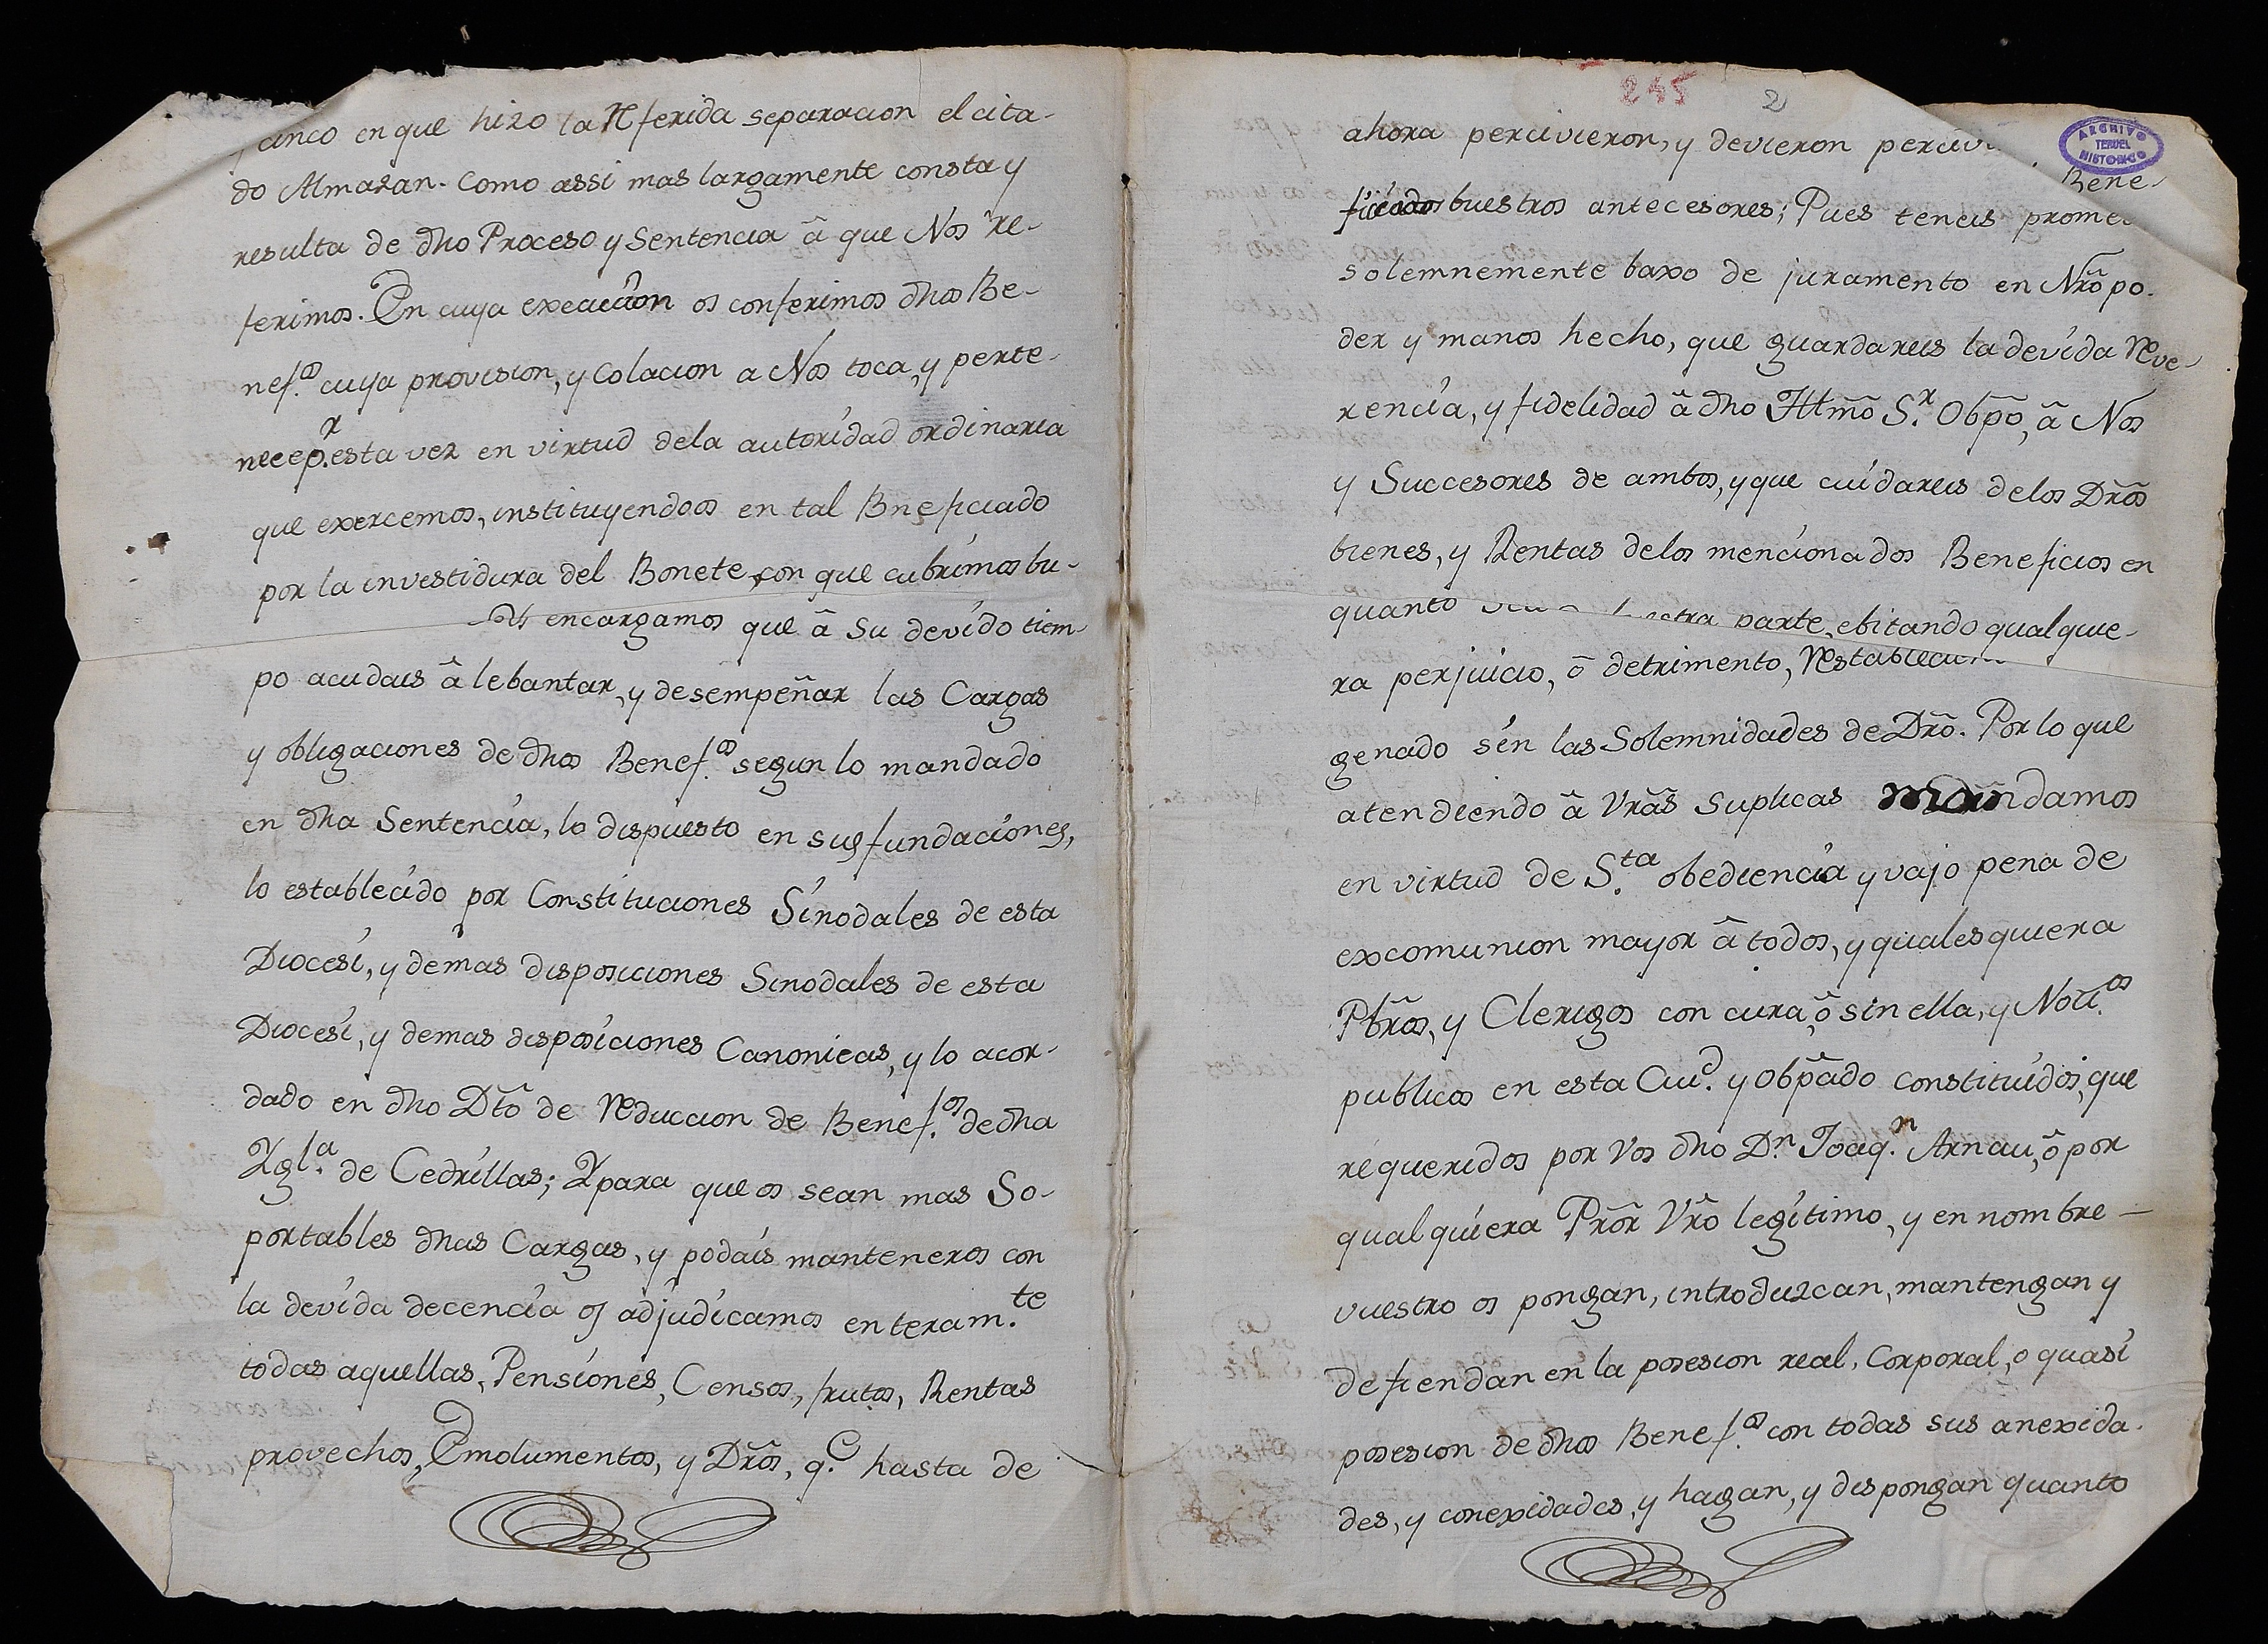 cinco en que hizo la Referida separacion el cita-
do Almazan. Como assi mas largamente consta y
resulta de dho Proceso y Sentencia â que Nos re-
ferimos. En cuya execucion os conferimos dhos Be-
nef.os cuya provision, y Colacion a Nos toca, y perte-
nece p.r esta vez en virtud dela autoridad ordinaria
que exercemos, instituyendoos en tal Beneficiado
por la investidura del Bonete con que cubrimos bu-
encargamos que â su devido tiem-
po acudais â lebantar, y desempeñar las Cargas
y obligaciones de dhos Benef.os segun lo mandado
en dha Sentencia, lo dispuesto en sus fundaciones,
lo establecido por Constituciones Sinodales de esta
Diocesi, y demas disposiciones Sinodales de esta
Diocesi, y demas disposiciones Canonicas, y lo acor-
dado en dho Dtõ de Reduccion de Benef.os de dha
Ygl.a de Cedrillas; Y para que os sean mas So-
portables dhas Cargas, y podais manteneros con
la devida decencia os adjudicamos enteram.te
todas aquellas, Pensiones, Censos, frutos, Rentas
provechos, Emolumentos, y Drõs, q.e hasta de
245 2
ARCHIVO
TERUEL
HISTORICO
ahora percivieron, y devieron
Bene-
ficiados buestros antecesores; Pues teneis
solemnemente baxo de juramento en Nrõ po-
der y manos hecho, que guardareis la devida Reve-
rencia, y fidelidad â dho Illmõ S.r Obpõ, â Nos
y Succesores de ambos, y que cuidareis delos Drõs
bienes, y Rentas delos mencionados Beneficios en
quanto parte, ebitando qualquie-
ra perjuicio, ô detrimento,
genado sin las Solemnidades de Drõ. Por lo que
atendiendo â Vrãs suplicas mandamos
en virtud de S.ta obediencia y vajo pena de
excomunion mayor â todos, y qualesquiera
Pbrõs, y Clerigos con cura, ô sin ella, y Not.os
publicos en esta Ciu.d y Obpãdo constituidos, que
requeridos por Vos dho D.n Joaq.n Arnau, ô por
qualquiera Prõr Vrõ legitimo, y en nombre
vuestro os pongan, introduzcan, mantengan y
defiendan en la posesion real, Corporal, o quasi
posesion de dhos Benef.os con todas sus anexida-
des, y conexidades, y hagan, y dispongan quanto